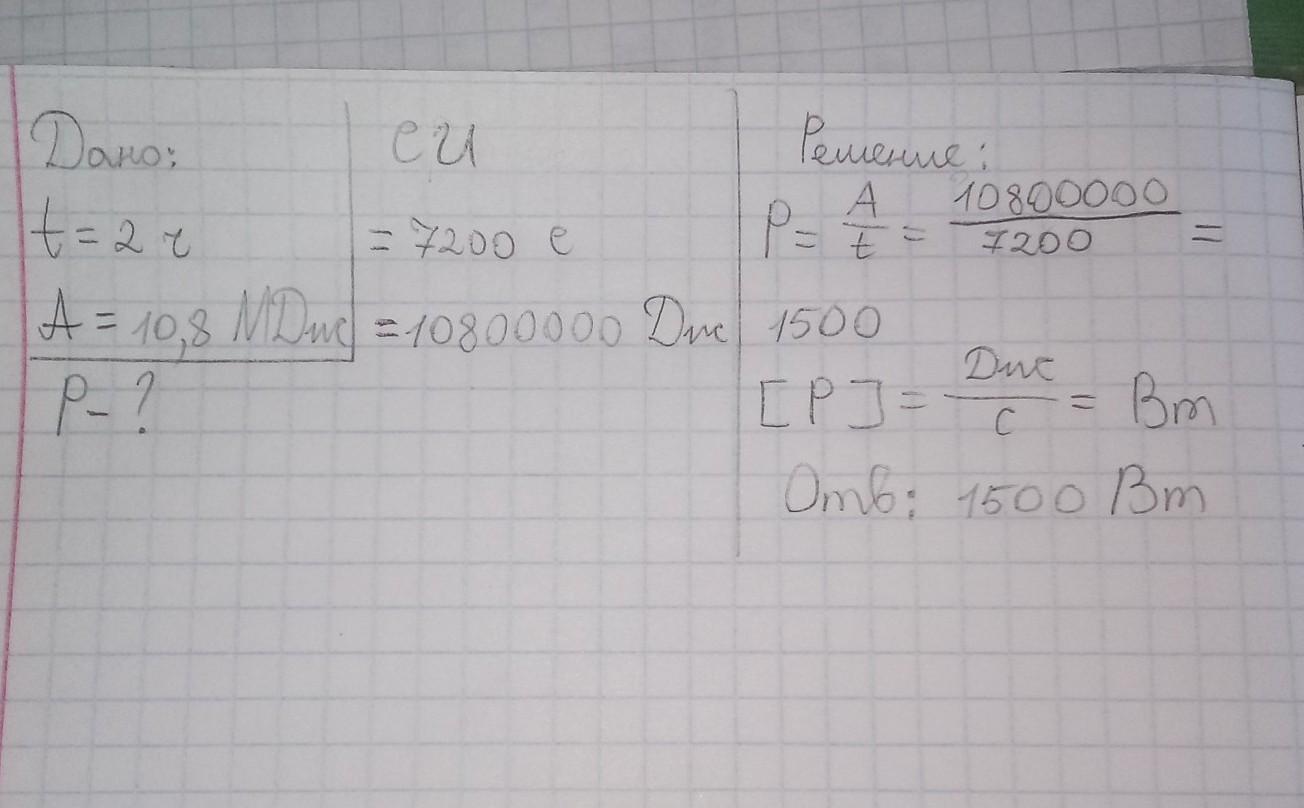 Дано:
t = 2 ч
A = 10,8 МДж
P - ?
СИ
= 7200 с
= 10800000 Дж
Решение:
P = A/t = 10800000/7200 =
1500
[P] = Дж/с = Вт
Отв: 1500 Вт